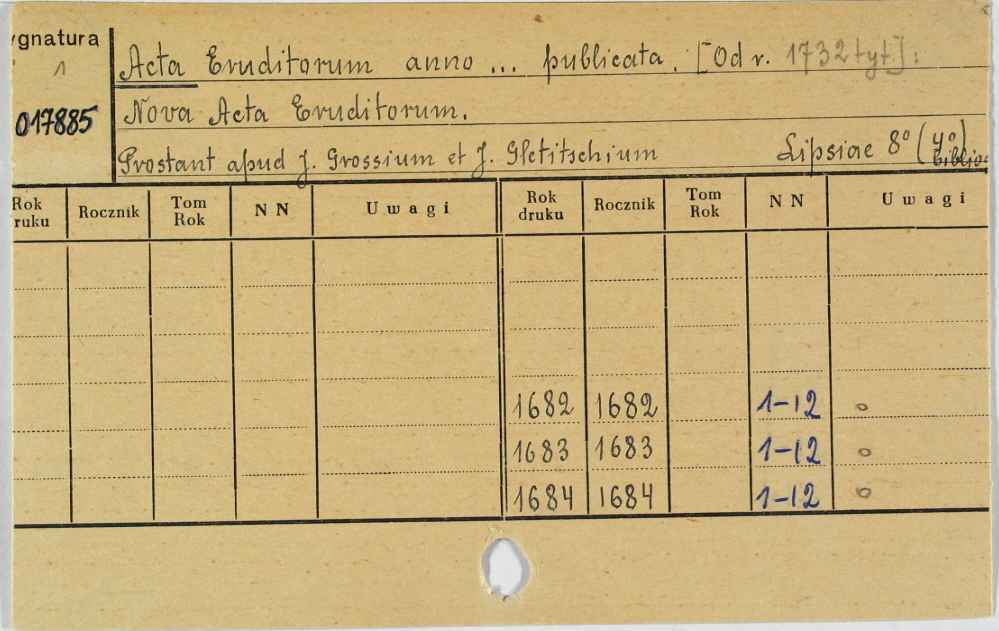 ygnatura
1
Acta Eruditorum anno ... publicata. [Od r. 1732 tyt.]:
017885
Nova Acta Eruditorum.
Prostant apud J. Grossium et J. Gletitschium Lipsiae 8° (4°)
biblio
Rok
ruku Rocznik Tom
Rok NN Uwagi Rok
druku Rocznik Tom
Rok NN Uwagi
1682 1682 1-12 o
1683 1683 1-12 o
1684 1684 1-12 o